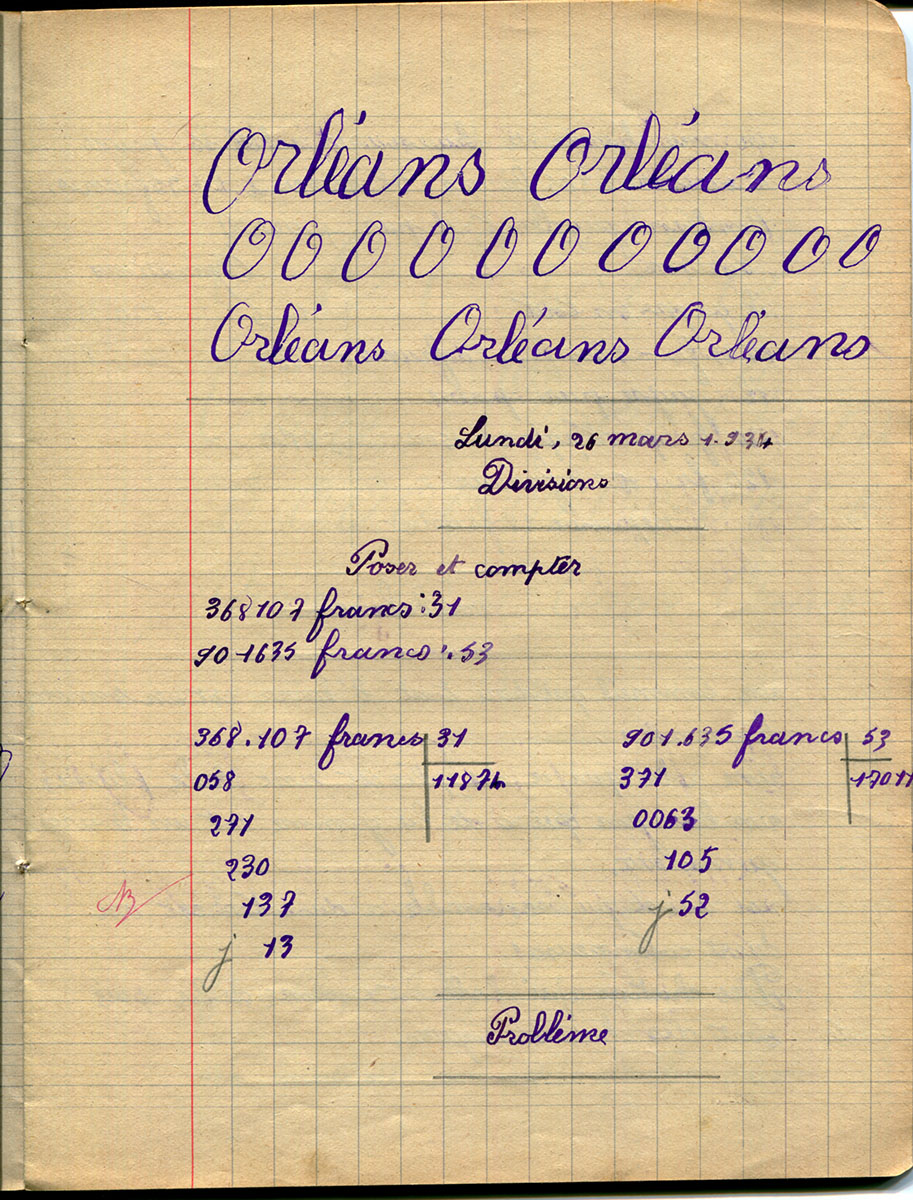 Orléans Orléans
O O O O O O O O O O O
Orléans Orléans Orléans
Lundi, 26 mars 1.934
Divisions
Poser et compter
368107 francs : 31
901635 francs : 53
368.107 francs 31
058 11874
271
230
137
j 13
901.635 francs 53
371 17011
0063
105
j 52
Problème